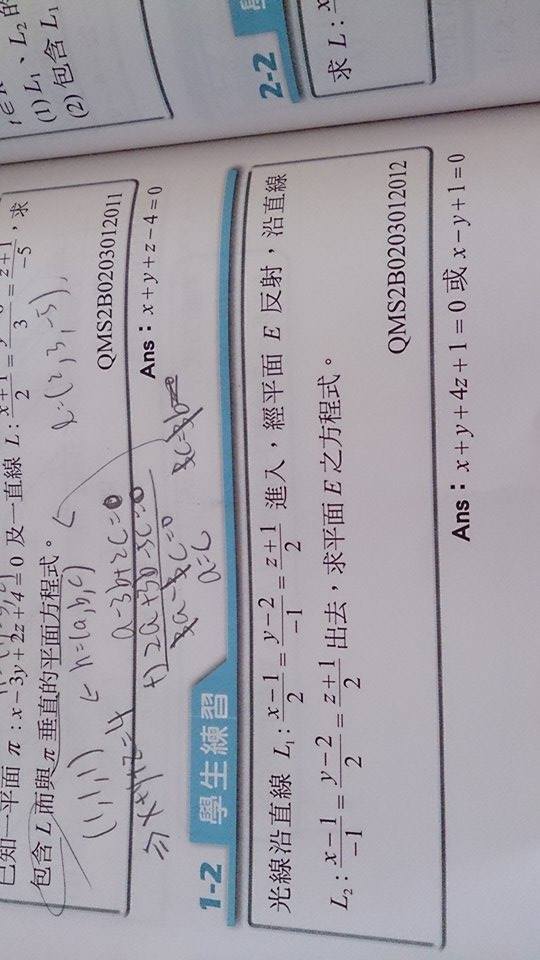 已知一平面 π : x − 3y + 2z + 4 = 0 及一直線 L : \frac{x+1}{2} = \frac{y-}{3} = \frac{z+1}{-5}，求
包含 L 而與 π 垂直的平面方程式。
(1,1,1) ← n=(a,b,c)
l=(2,3,-5)
a-3b+2c=0
+) 2a+3b-5c=0
3a-3c=0
a=c
⇒ x+y+z=4
QMS2B0203012011
Ans：x + y + z − 4 = 0
1-2 學生練習
光線沿直線 L₁ : \frac{x-1}{2} = \frac{y-2}{-1} = \frac{z+1}{2} 進入，經平面 E 反射，沿直線
L₂ : \frac{x-1}{-1} = \frac{y-2}{2} = \frac{z+1}{2} 出去，求平面 E 之方程式。
QMS2B0203012012
Ans：x + y + 4z + 1 = 0 或 x − y + 1 = 0
(1) L₁、L₂ 的
(2) 包含 L₁
2-2
求 L :